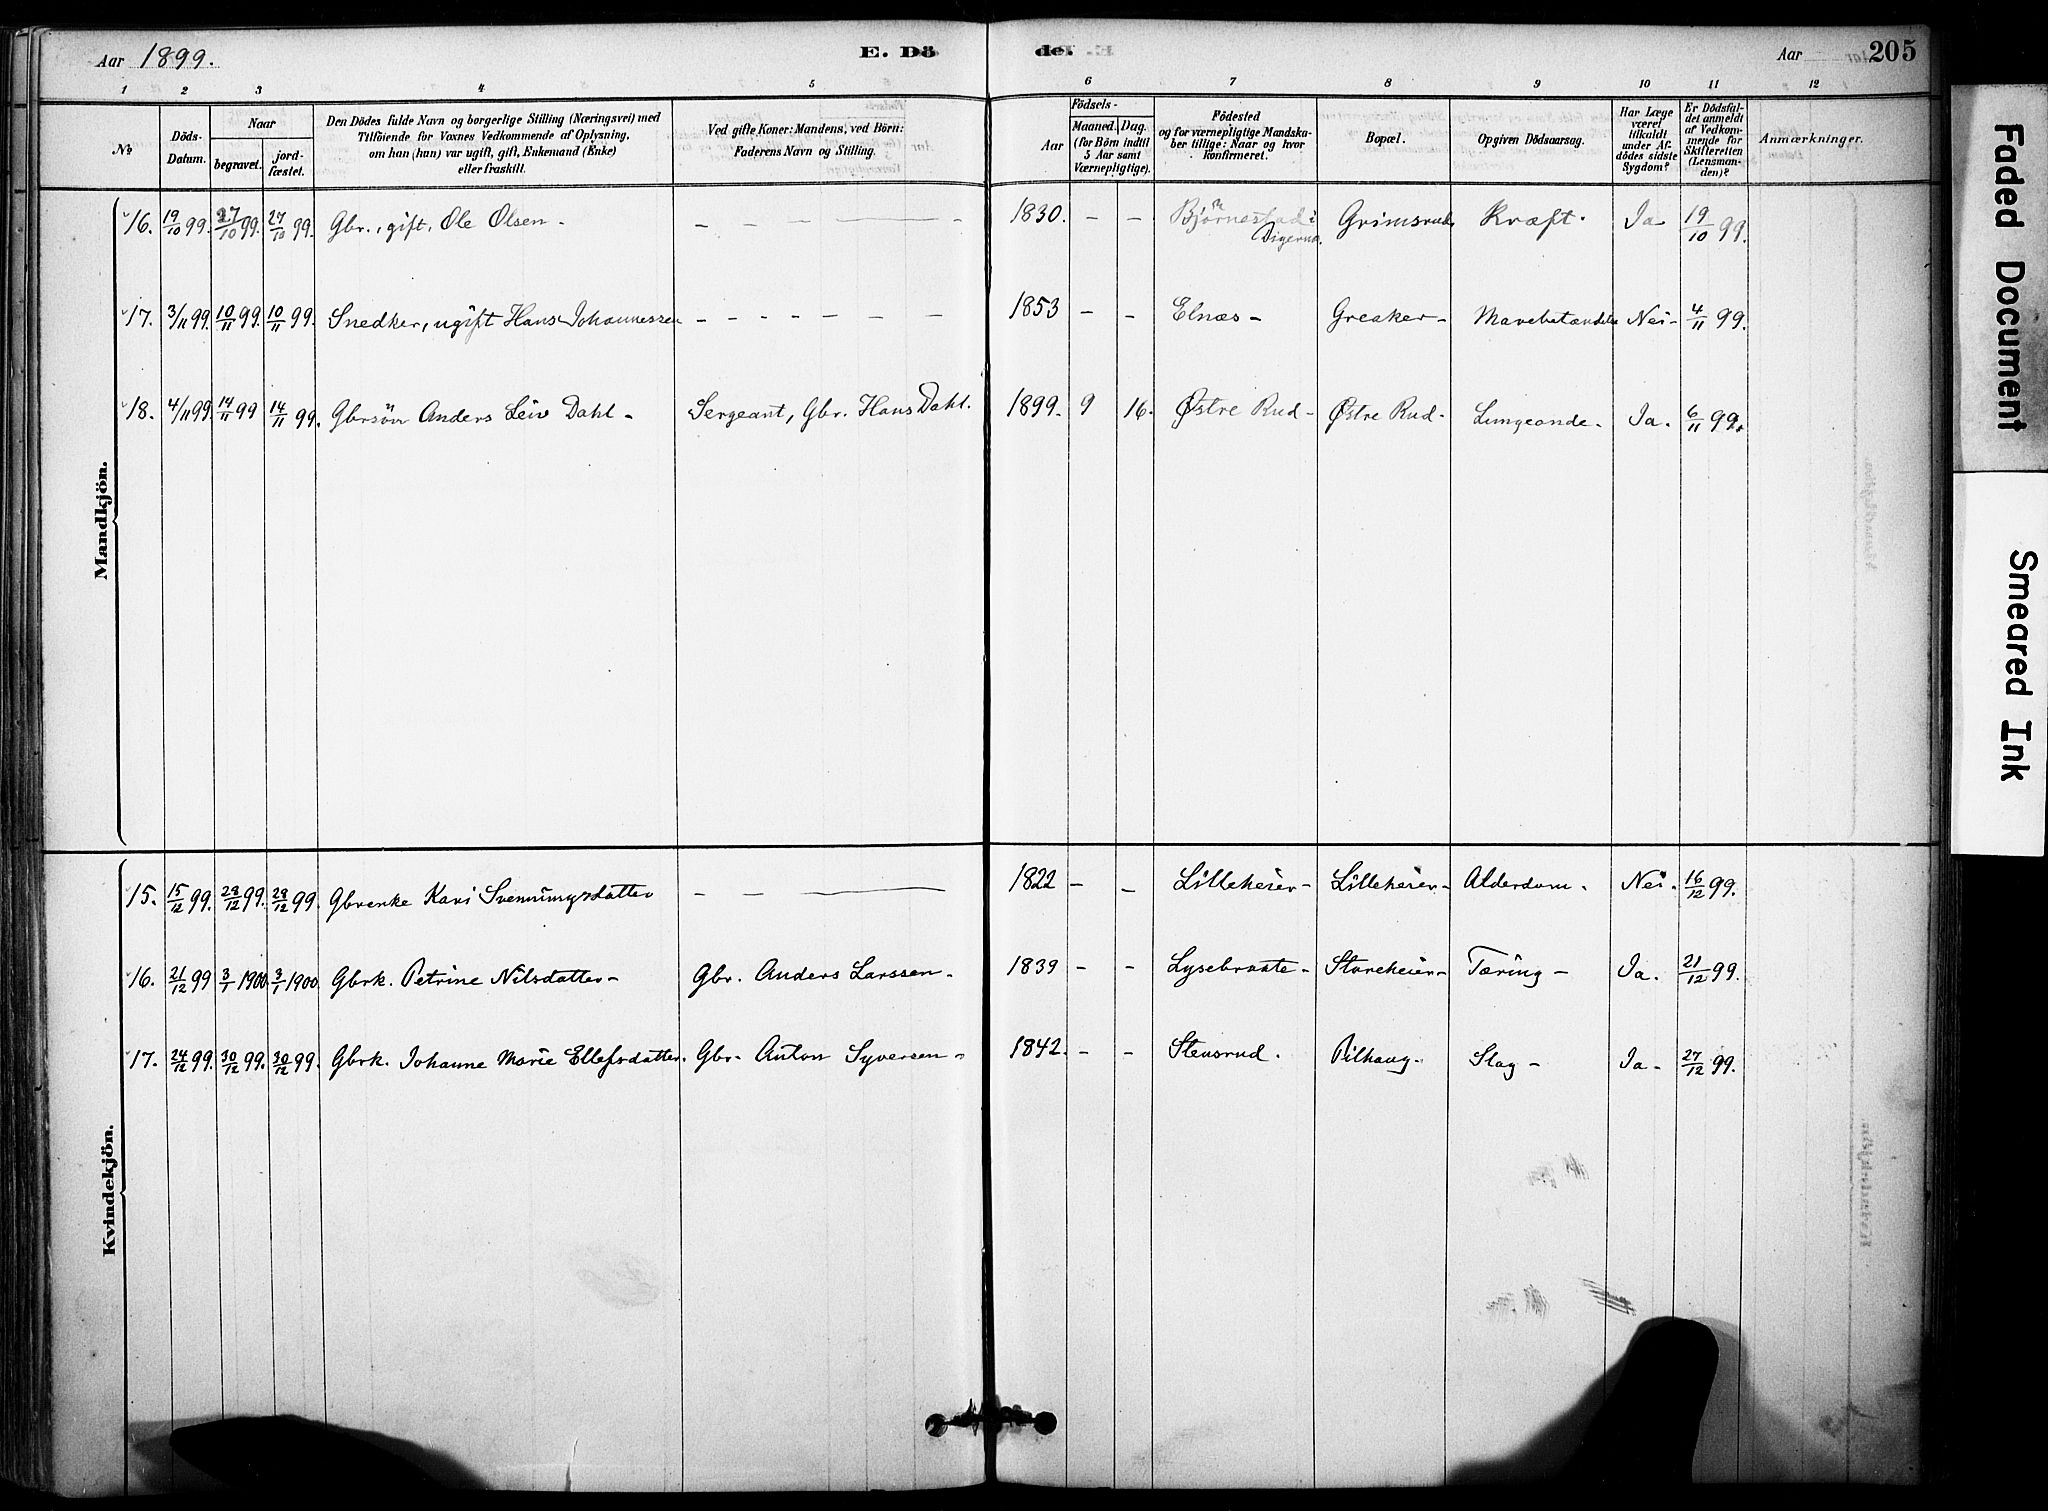 Aar 1899. E. Döde. Aar 205
1 2 3 4 5 6 7 8 9 10 11 12
No.
Döds-Datum.
Naar
begravet.
jord-fæstet.
Den Dödes fulde Navn og borgerlige Stilling (Næringsvei) med
Tilföiende for Voxnes Vedkommende af Oplysning,
om han (hun) var ugift, gift, Enkemand (Enke)
eller fraskilt.
Ved gifte Koner: Mandens, ved Börn:
Faderens Navn og Stilling.
Födsels-
Aar
Maaned. Dag.
(for Börn indtil
5 Aar samt
Værnepligtige).
Födested
og for værnepligtige Mandska-
ber tillige: Naar og hvor
konfirmeret.
Bopæl.
Opgiven Dödsaarsag.
Har Læge
været
tilkaldt
under Af-
dödes sidste
Sygdom?
Er Dödsfal-
det anmeldt
af Vedkom-
mende for
Skifteretten
(Lensman-
den)?
Anmærkninger.
Mandkjön.
16. 19/10 99. 27/10 99. 27/10 99. Gbr., gift, Ole Olsen - - - 1830. - - Bjørnestad i Grimsrud, Kræft. Ja 19/10 99.
Digernes.
17. 3/11 99. 10/11 99. 10/11 99. Snedker, ugift Hans Johannessen - - - - - - 1853 - - Elnæs - Greaker - Mavebetændelse Nei - 4/11 99.
18. 4/11 99 14/11 99 14/11 99. Gbrsön Anders Leiv Dahl - Sergeant, Gbr. Hans Dahl. 1899. 9 16. Østre Rud - Østre Rud - Lungeonde. Ja. 6/11 99.
Kvindekjön.
15. 15/12 99. 28/12 99. 28/12 99. Gbrenke Kari Svenningsdatter - - 1822 - - Lilleheier - Lilleheier - Alderdom. Nei. 16/12 99.
16. 21/12 99 3/1 1900. 3/1 1900. Gbrk. Petrine Nilsdatter - Gbr. Anders Larssen. 1839 - - Lysebraate - Storeheier - Tæring - Ja. 21/12 99.
17. 24/12 99. 30/12 99. 30/12 99. Gbrk. Johanne Marie Ellefsdatter. Gbr. Anton Syversen - 1842. - - Stensrud. Pilhaug. Slag - Ja - 27/12 99.
Faded Document
Smeared Ink